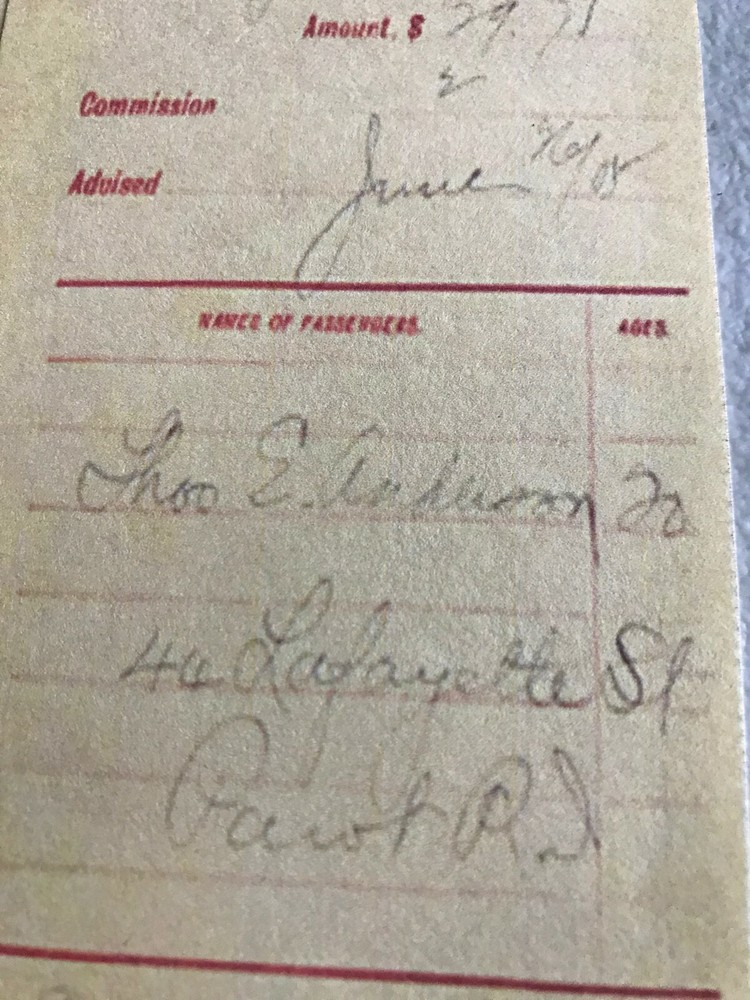 Amount, $ 29.71
Commission 2
Advised June
NAMES OF PASSENGERS. AGES.
Thos E. Anderson 22
40 Lafayette St
Pawt R.I